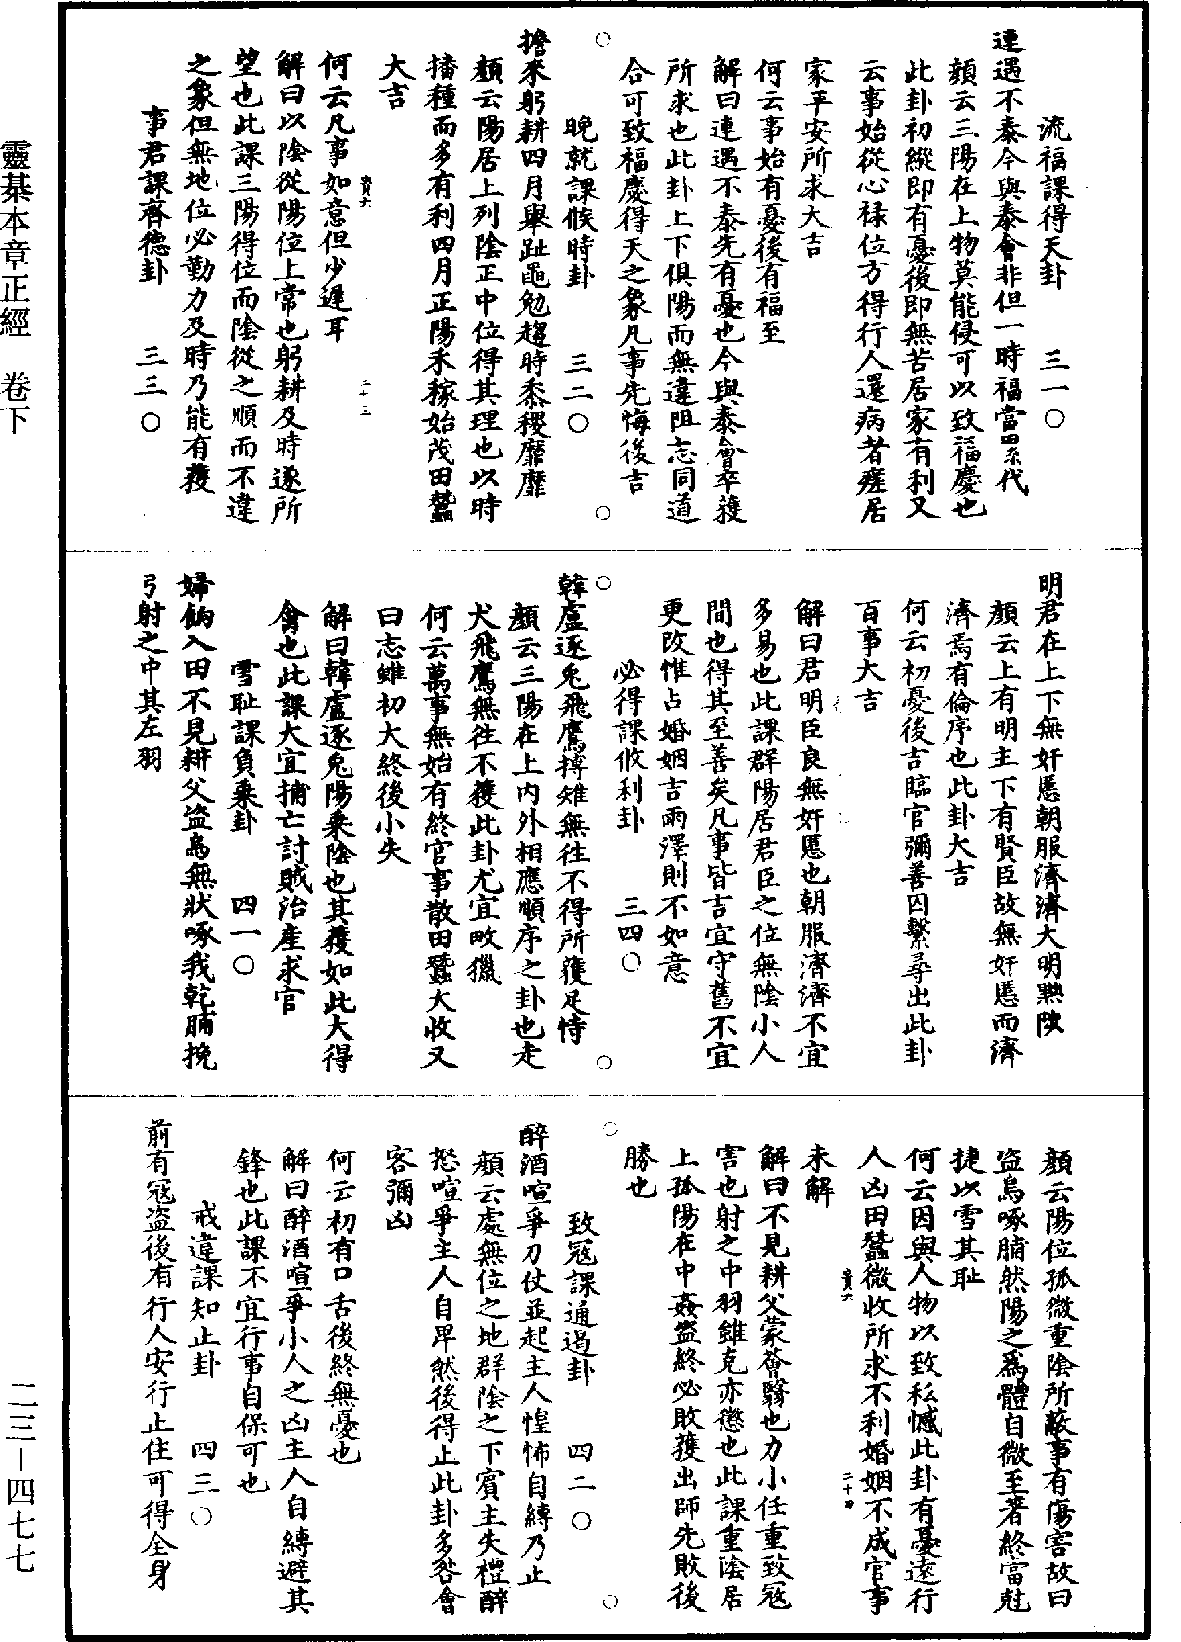 靈棊本章正經　卷下
二三—四七七
流福課得天卦　三一〇
連遇不泰今與泰會非但一時福當累代
顏云三陽在上物莫能侵可以致福慶也
此卦初縱即有憂後即無苦居家有利又
云事始從心祿位方得行人還病者瘥居
家平安所求大吉
何云事始有憂後有福至
解曰連遇不泰先有憂也今與泰會卒獲
所求也此卦上下俱陽而無違阻志同道
合可致福慶得天之象凡事先悔後吉
晚就課候時卦　三二〇
擔來躬耕四月舉趾黽勉趨時黍稷靡靡
顏云陽居上列陰正中位得其理也以時
播種而多有利四月正陽禾稼始茂田蠶
大吉
何云凡事如意但少遲耳
解曰以陰從陽位上常也躬耕及時遂所
望也此課三陽得位而陰從之順而不違
之象但無地位必勤力及時乃能有穫
事君課齊德卦　三三〇
明君在上下無奸慝朝服濟濟大明黜陟
顏云上有明主下有賢臣故無奸慝而濟
濟焉有倫序也此卦大吉
何云初憂後吉臨官彌善囚繫尋出此卦
百事大吉
解曰君明臣良無奸慝也朝服濟濟不宜
多易也此課群陽居君臣之位無陰小人
間也得其至善矣凡事皆吉宜守舊不宜
更改惟占婚姻吉雨澤則不如意
必得課攸利卦　三四〇
韓盧逐兔飛鷹搏雉無往不得所獲足恃
顏云三陽在上內外相應順序之卦也走
犬飛鷹無往不獲此卦尤宜畋獵
何云萬事無始有終官事散田蠶大收又
曰志雖初大終後小失
解曰韓盧逐兔陽乘陰也其獲如此大得
禽也此課大宜捕亡討賊治產求官
雪恥課負乘卦　四一〇
婦餉入田不見耕父盜烏無狀啄我乾脯挽
弓射之中其左羽
顏云陽位孤微重陰所蔽事有傷害故曰
盜烏啄脯然陽之為體自微至著終當尅
捷以雪其恥
何云因與人物以致私憾此卦有憂遠行
人凶田蠶微收所求不利婚姻不成官事
未解
解曰不見耕父蒙薈翳也力小任重致寇
害也射之中羽雖克亦憊也此課重陰居
上孤陽在中姦盜終必敗獲出師先敗後
勝也
致寇課通遏卦　四二〇
醉酒喧爭刀仗並起主人惶怖自縛乃止
顏云處無位之地群陰之下賓主失禮醉
怒喧爭主人自卑然後得止此卦多咎會
客彌凶
何云初有口舌後終無憂也
解曰醉酒喧爭小人之凶主人自縛避其
鋒也此課不宜行事自保可也
戒違課知止卦　四三〇
前有寇盜後有行人安行止住可得全身